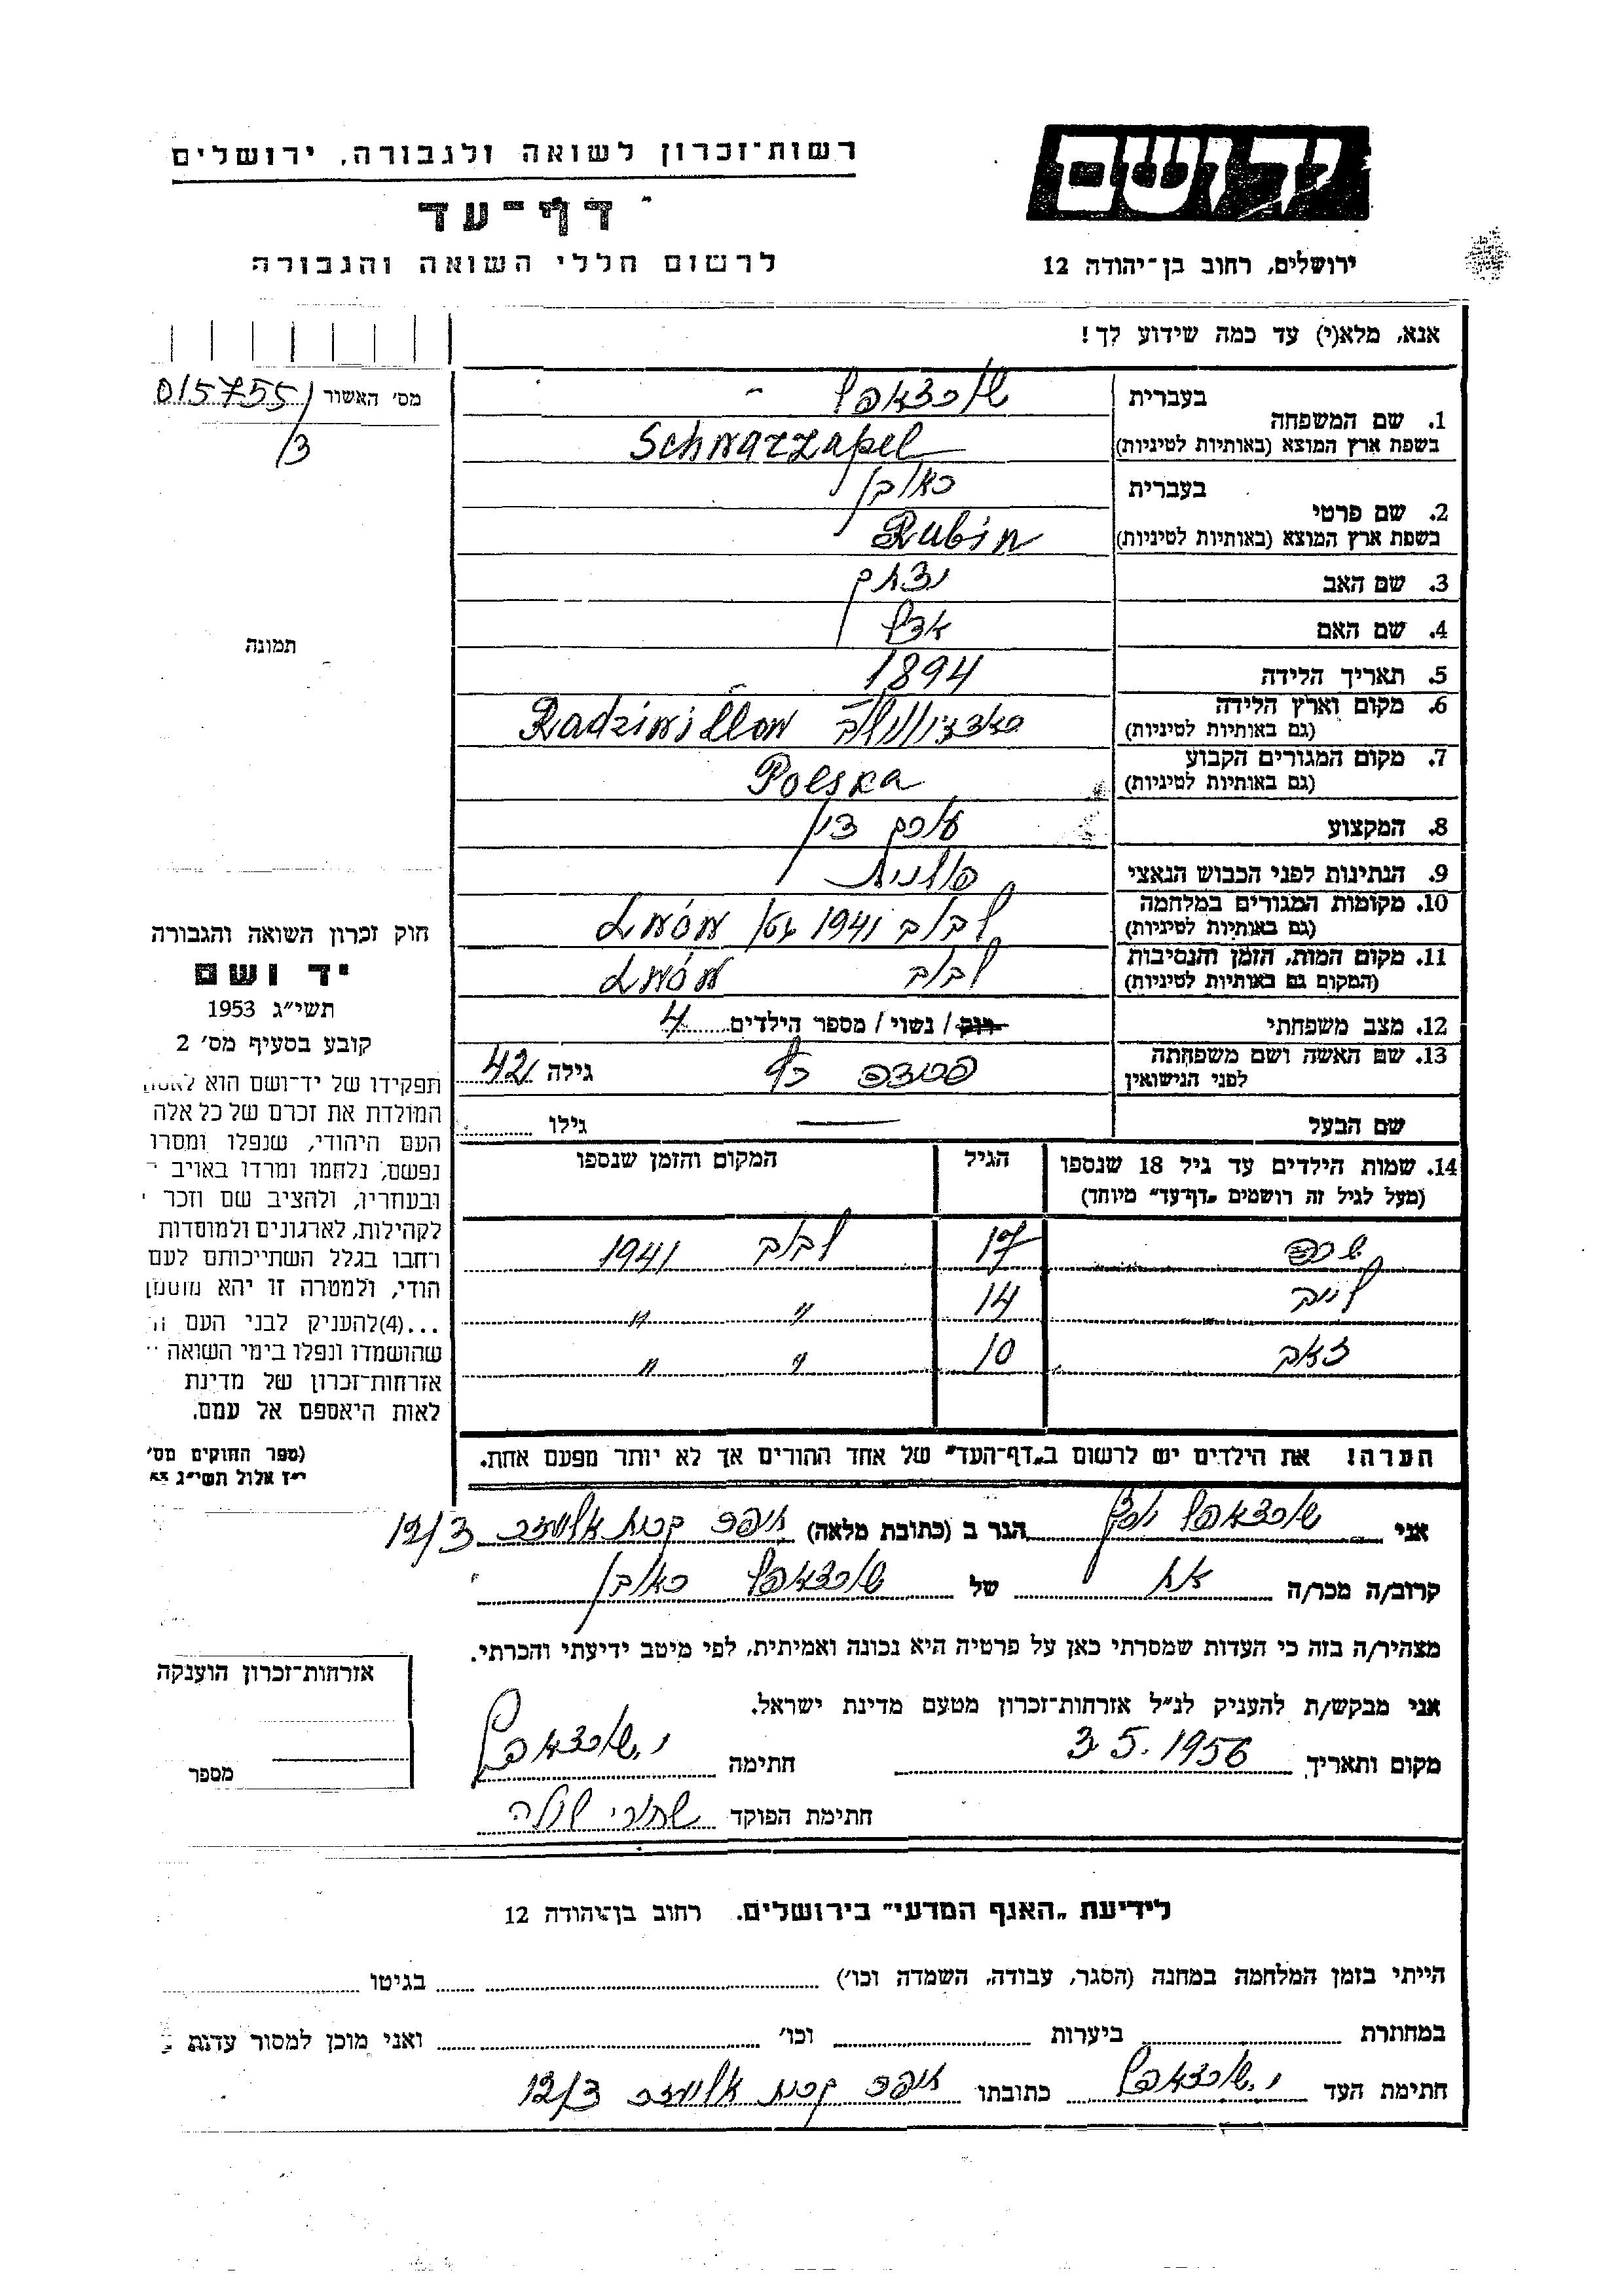 יד ושם
רשות־זכרון לשואה ולגבורה, ירושלים
דף־עד
ירושלים, רחוב בן־יהודה 12
לרשום חללי השואה והגבורה
אנא, מלא(י) עד כמה שידוע לך!
מס' האשור 015755/
/3
תמונה
1. שם המשפחה
בעברית
בשפת ארץ המוצא (באותיות לטיניות) Schwarzapel
2. שם פרטי
בעברית ראובן
בשפת ארץ המוצא (באותיות לטיניות) Rubin
3. שם האב
4. שם האם
5. תאריך הלידה 1894
6. מקום וארץ הלידה
(גם באותיות לטיניות) Radziwillow
7. מקום המגורים הקבוע
(גם באותיות לטיניות) Polska
8. המקצוע עורך דין
9. הנתינות לפני הכבוש הנאצי פולנית
10. מקומות המגורים במלחמה
(גם באותיות לטיניות) לבוב 1941 גטו Lwów
11. מקום המות, הזמן והנסיבות
(המקום גם באותיות לטיניות) לבוב Lwów
12. מצב משפחתי רוק / נשוי / מספר הילדים 4
13. שם האשה ושם משפחתה
לפני הנישואין
גילה 42
שם הבעל — גילו
14. שמות הילדים עד גיל 18 שנספו
(מעל לגיל זה רושמים „דף־עד" מיוחד)
הגיל
המקום והזמן שנספו
שרה 17 לבוב 1941
14 " "
זאב 10 " "
הערה! את הילדים יש לרשום ב„דף־העד" של אחד ההורים אך לא יותר מפעם אחת.
חוק זכרון השואה והגבורה
יד ושם
תשי"ג 1953
קובע בסעיף מס' 2
תפקידו של יד־ושם הוא
המולדת את זכרם של כל אלה
העם היהודי, שנפלו ומסרו
נפשם, נלחמו ומרדו באויב
ובעוזריו, ולהציב שם וזכר
לקהילות, לארגונים ולמוסדות
בגלל השתייכותם לעם
ולמטרה זו יהא
...(4)להעניק לבני העם
שהושמדו ונפלו בימי השואה
אזרחות־זכרון של מדינת
לאות היאספם אל עמם.
(ספר החוקים מס'
י"ז אלול תשי"ג 53
אני הגר ב (כתובת מלאה) חיפה קרית אליעזר 12/3
קרוב/ה מכר/ה אח של ראובן
מצהיר/ה בזה כי העדות שמסרתי כאן על פרטיה היא נכונה ואמיתית, לפי מיטב ידיעתי והכרתי.
אני מבקש/ת להעניק לנ"ל אזרחות־זכרון מטעם מדינת ישראל.
אזרחות־זכרון הוענקה
מספר
מקום ותאריך 3.5.1956 חתימה
חתימת הפוקד
לידיעת „האגף המדעי" בירושלים. רחוב בן־יהודה 12
הייתי בזמן המלחמה במחנה (הסגר, עבודה, השמדה וכו') בגיטו
במחתרת ביערות וכו' ואני מוכן למסור עדות
חתימת העד כתובתו חיפה קרית אליעזר 12/3